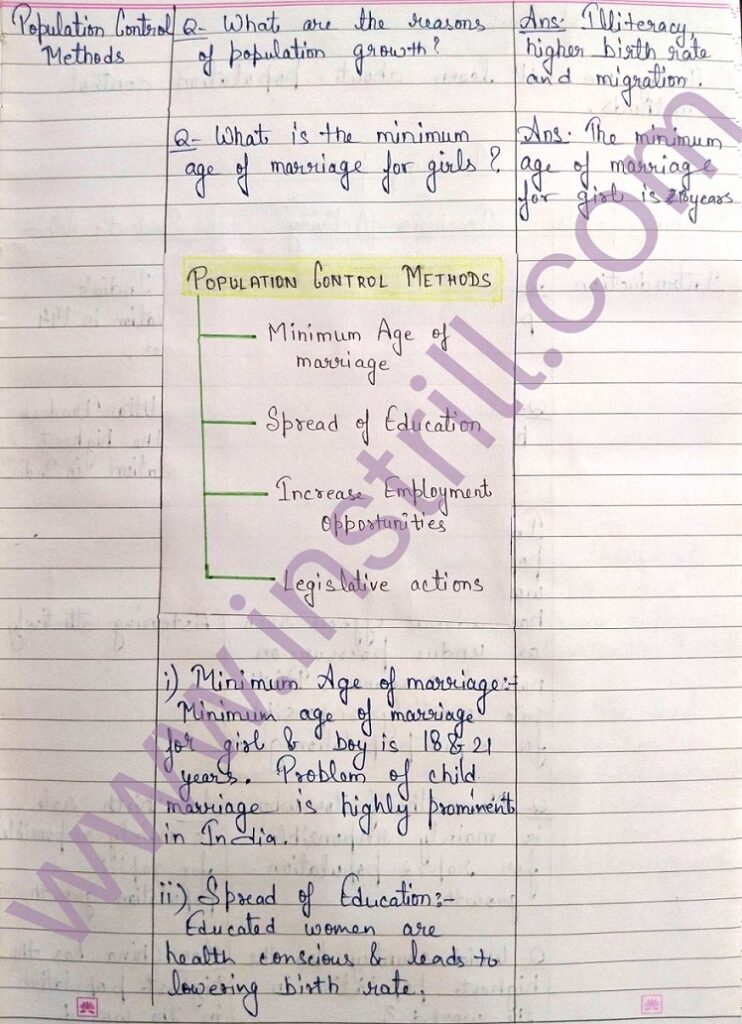 Population Control
Methods
Q- What are the reasons
of population growth?
Ans: Illiteracy,
higher birth rate
and migration.
Q- What is the minimum
age of marriage for girls?
Ans. The minimum
age of marriage
for girl is 18 years
POPULATION CONTROL METHODS
Minimum Age of
marriage
Spread of Education
Increase Employment
Opportunities
Legislative actions
i) Minimum Age of marriage:-
Minimum age of marriage
for girl & boy is 18 & 21
years. Problem of child
marriage is highly prominent
in India.
ii) Spread of Education:-
Educated women are
health conscious & leads to
lowering birth rate.
www.instrill.com